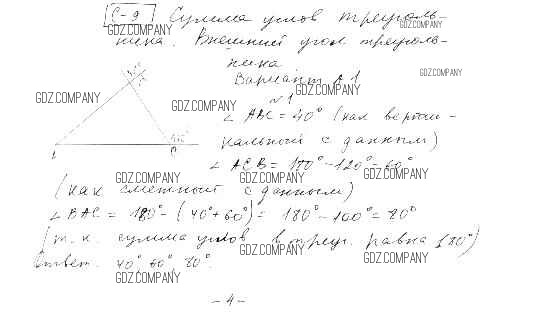 С-9 Сумма углов треуголь-
GDZ.COMPANY GDZ.COMPANY
ника. Внешний угол треуголь-
ника
Вариант А1
GDZ.COMPANY
GDZ.COMPANY
№1
GDZ.COMPANY GDZ.COMPANY
∠ ABC = 40° (как верти-
кальный с данным)
∠ ACB = 180° - 120° = 60°
GDZ.COMPANY GDZ.COMPANY
(как смежный с данным)
∠ BAC = 180° - (40° + 60°) = 180° - 100° = 80°
GDZ.COMPANY
(т. к. сумма углов в треуг. равна 180°)
GDZ.COMPANY GDZ.COMPANY
Ответ. 40°, 60°, 80°.
GDZ.COMPANY
- 4 -